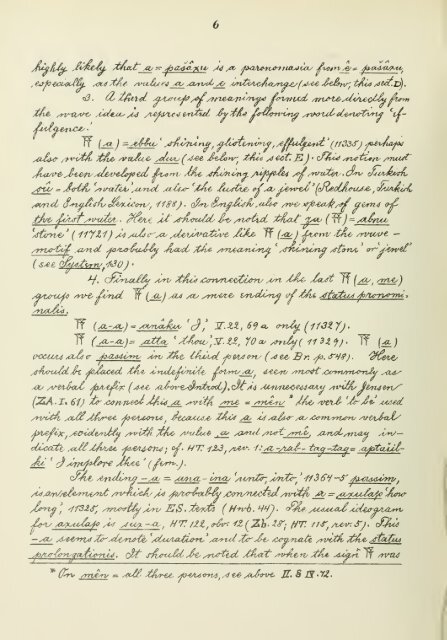 6
highly likely that a = pašâxu is a paronomasia from ê = pašâxu,
especially as the values a and e interchange (see below, this sect. D).
3. A third group of meanings formed more directly from
the wave idea is represented by the following word denoting 'ef-
fulgence.'
𒀀 (a) = ebbu 'shining, glistening, effulgent' (11335) perhaps
also with the value dur (see below, this sect. E). This notion must
have been developed from the shining ripples of water. In Turkish
= both 'water' and also 'the lustre of a jewel' (Redhouse, Turkish
and English Lexicon, 1188). In English, also we speak of gems of
the first water. Here it should be noted that za (𒀀) = abnu
'stone' (11721) is also a derivative like 𒀀 (a) from the wave-
motif and probably had the meaning 'shining stone' or 'jewel'
(see System, 130).
4. Finally in this connection in the last 𒀀 (a, me)
group we find 𒀀 (a) as a mere ending of the status pronomi-
nalis,
𒀀 (a-a) = anâku 'I,' V. 22, 69 a only (11327).
𒀀 (a-a) = atta 'thou,' V. 22, 70 a only (11329). 𒀀 (a)
occurs also passim in the third person (see Br. p. 548). Here
should be placed the indefinite form a, seen most commonly as
a verbal prefix (see above Introd.). It is unnecessary with Jensen
(ZA. I. 61) to connect this a with me = mên* the verb 'to be' used
with all three persons, because this a is also a common verbal
prefix, evidently with the value a and not me, and may in-
dicate all three persons; cf. HT. 123, rev. 1: a-rab-tag-tag =
ki 'I implore thee' (fem.).
The ending -a = ana-ina 'unto, into,' 11364-5 passim,
is an element which is probably connected with a = axulap 'how
long,' 11325, mostly in E.S. texts (Hwb. 44). The usual ideogram
for axulap is sux-a, HT. 122, obv. 12 (Zb. 25; HT. 115, rev. 5). This
-a seems to denote 'duration' and to be cognate with the status
prolongationis. It should be noted that when the sign 𒀀 was
* On mên = all three persons, see above II. § IV. 42.